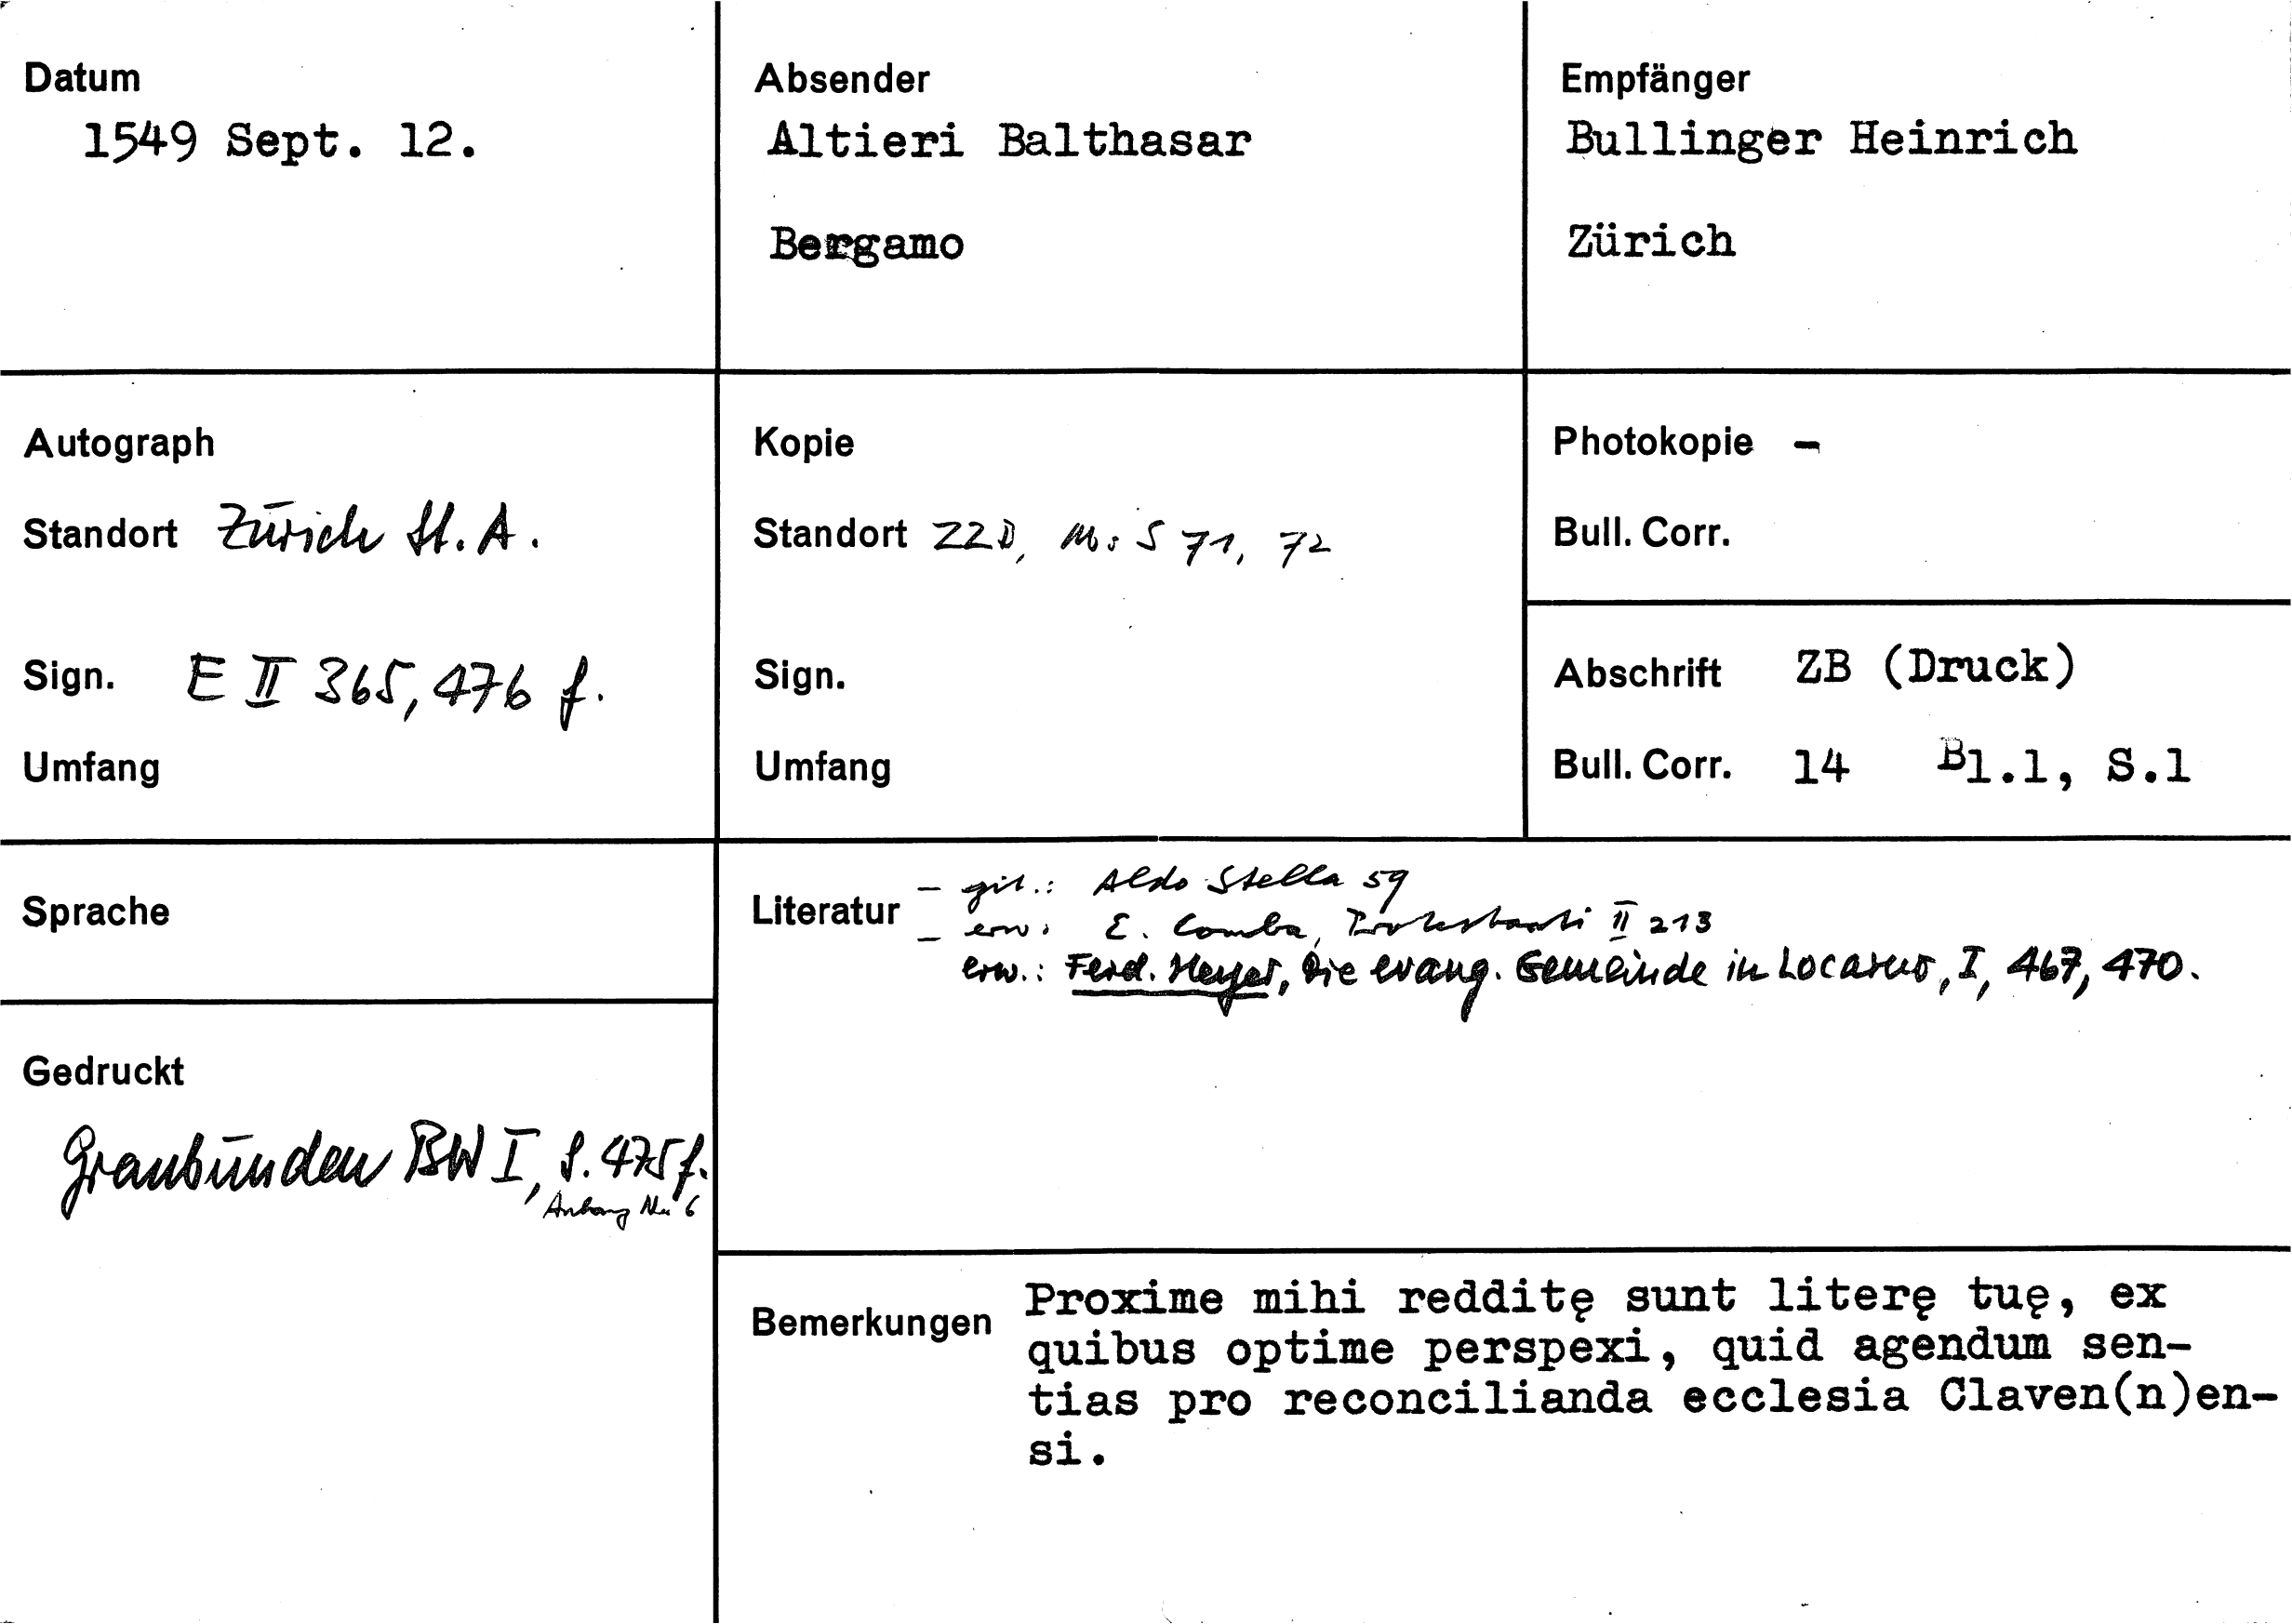 Datum
1549 Sept. 12.
Absender
Altieri Balthasar
Bergamo
Empfänger
Bullinger Heinrich
Zürich
Autograph
Standort Zürich St. A.
Sign. E II 365, 476 f.
Umfang
Kopie
Standort ZZB, Ms S 71, 72
Sign.
Umfang
Photokopie -
Bull. Corr.
Abschrift ZB (Druck)
Bull. Corr. 14 Bl.1, S.1
Sprache
Literatur
- zit.: Aldo Stella 59
- erw. E. Comba, Protestanti II 213
erw.: Ferd. Meyer, Die evang. Gemeinde in Locarno, I, 467, 470.
Gedruckt
Graubünden BW I, S. 475 f.
Anhang Nr. 6
Bemerkungen
Proxime mihi redditę sunt literę tuę, ex
quibus optime perspexi, quid agendum sen-
tias pro reconcilianda ecclesia Claven(n)en-
si.